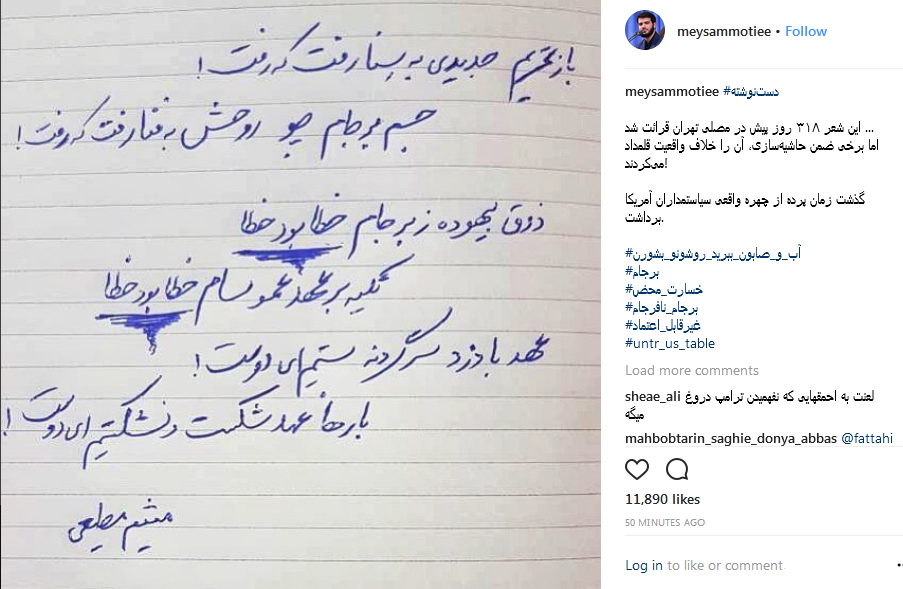 باز تحریم جدیدی به سِنا رفت که رفت!
جسم برجام چو روحش به فنا رفت که رفت!
ذوق بیهوده ز برجام خطا بود خطا
تکیه بر عهد عمو سام خطا بود خطا
عهد با دزد سرگردنه بستیم ای دوست!
بارها عهد شکست و نشکستیم ای دوست!
میثم مطیعی
meysammotiee • Follow
meysammotiee #دست‌نوشته
این شعر ۳۱۸ روز پیش در مصلی تهران قرائت شد ...
اما برخی ضمن حاشیه‌سازی، آن را خلاف واقعیت قلمداد
می‌کردند!
گذشت زمان پرده از چهره واقعی سیاستمداران آمریکا
برداشت.
#آب_و_صابون_ببرید_روشونو_بشورن
#برجام
#خسارت_محض
#برجام_نافرجام
#غیرقابل_اعتماد
#untr_us_table
Load more comments
sheae_ali لعنت به احمقهایی که نفهمیدن ترامپ دروغ
میگه
mahbobtarin_saghie_donya_abbas @fattahi
11,890 likes
50 MINUTES AGO
Log in to like or comment.